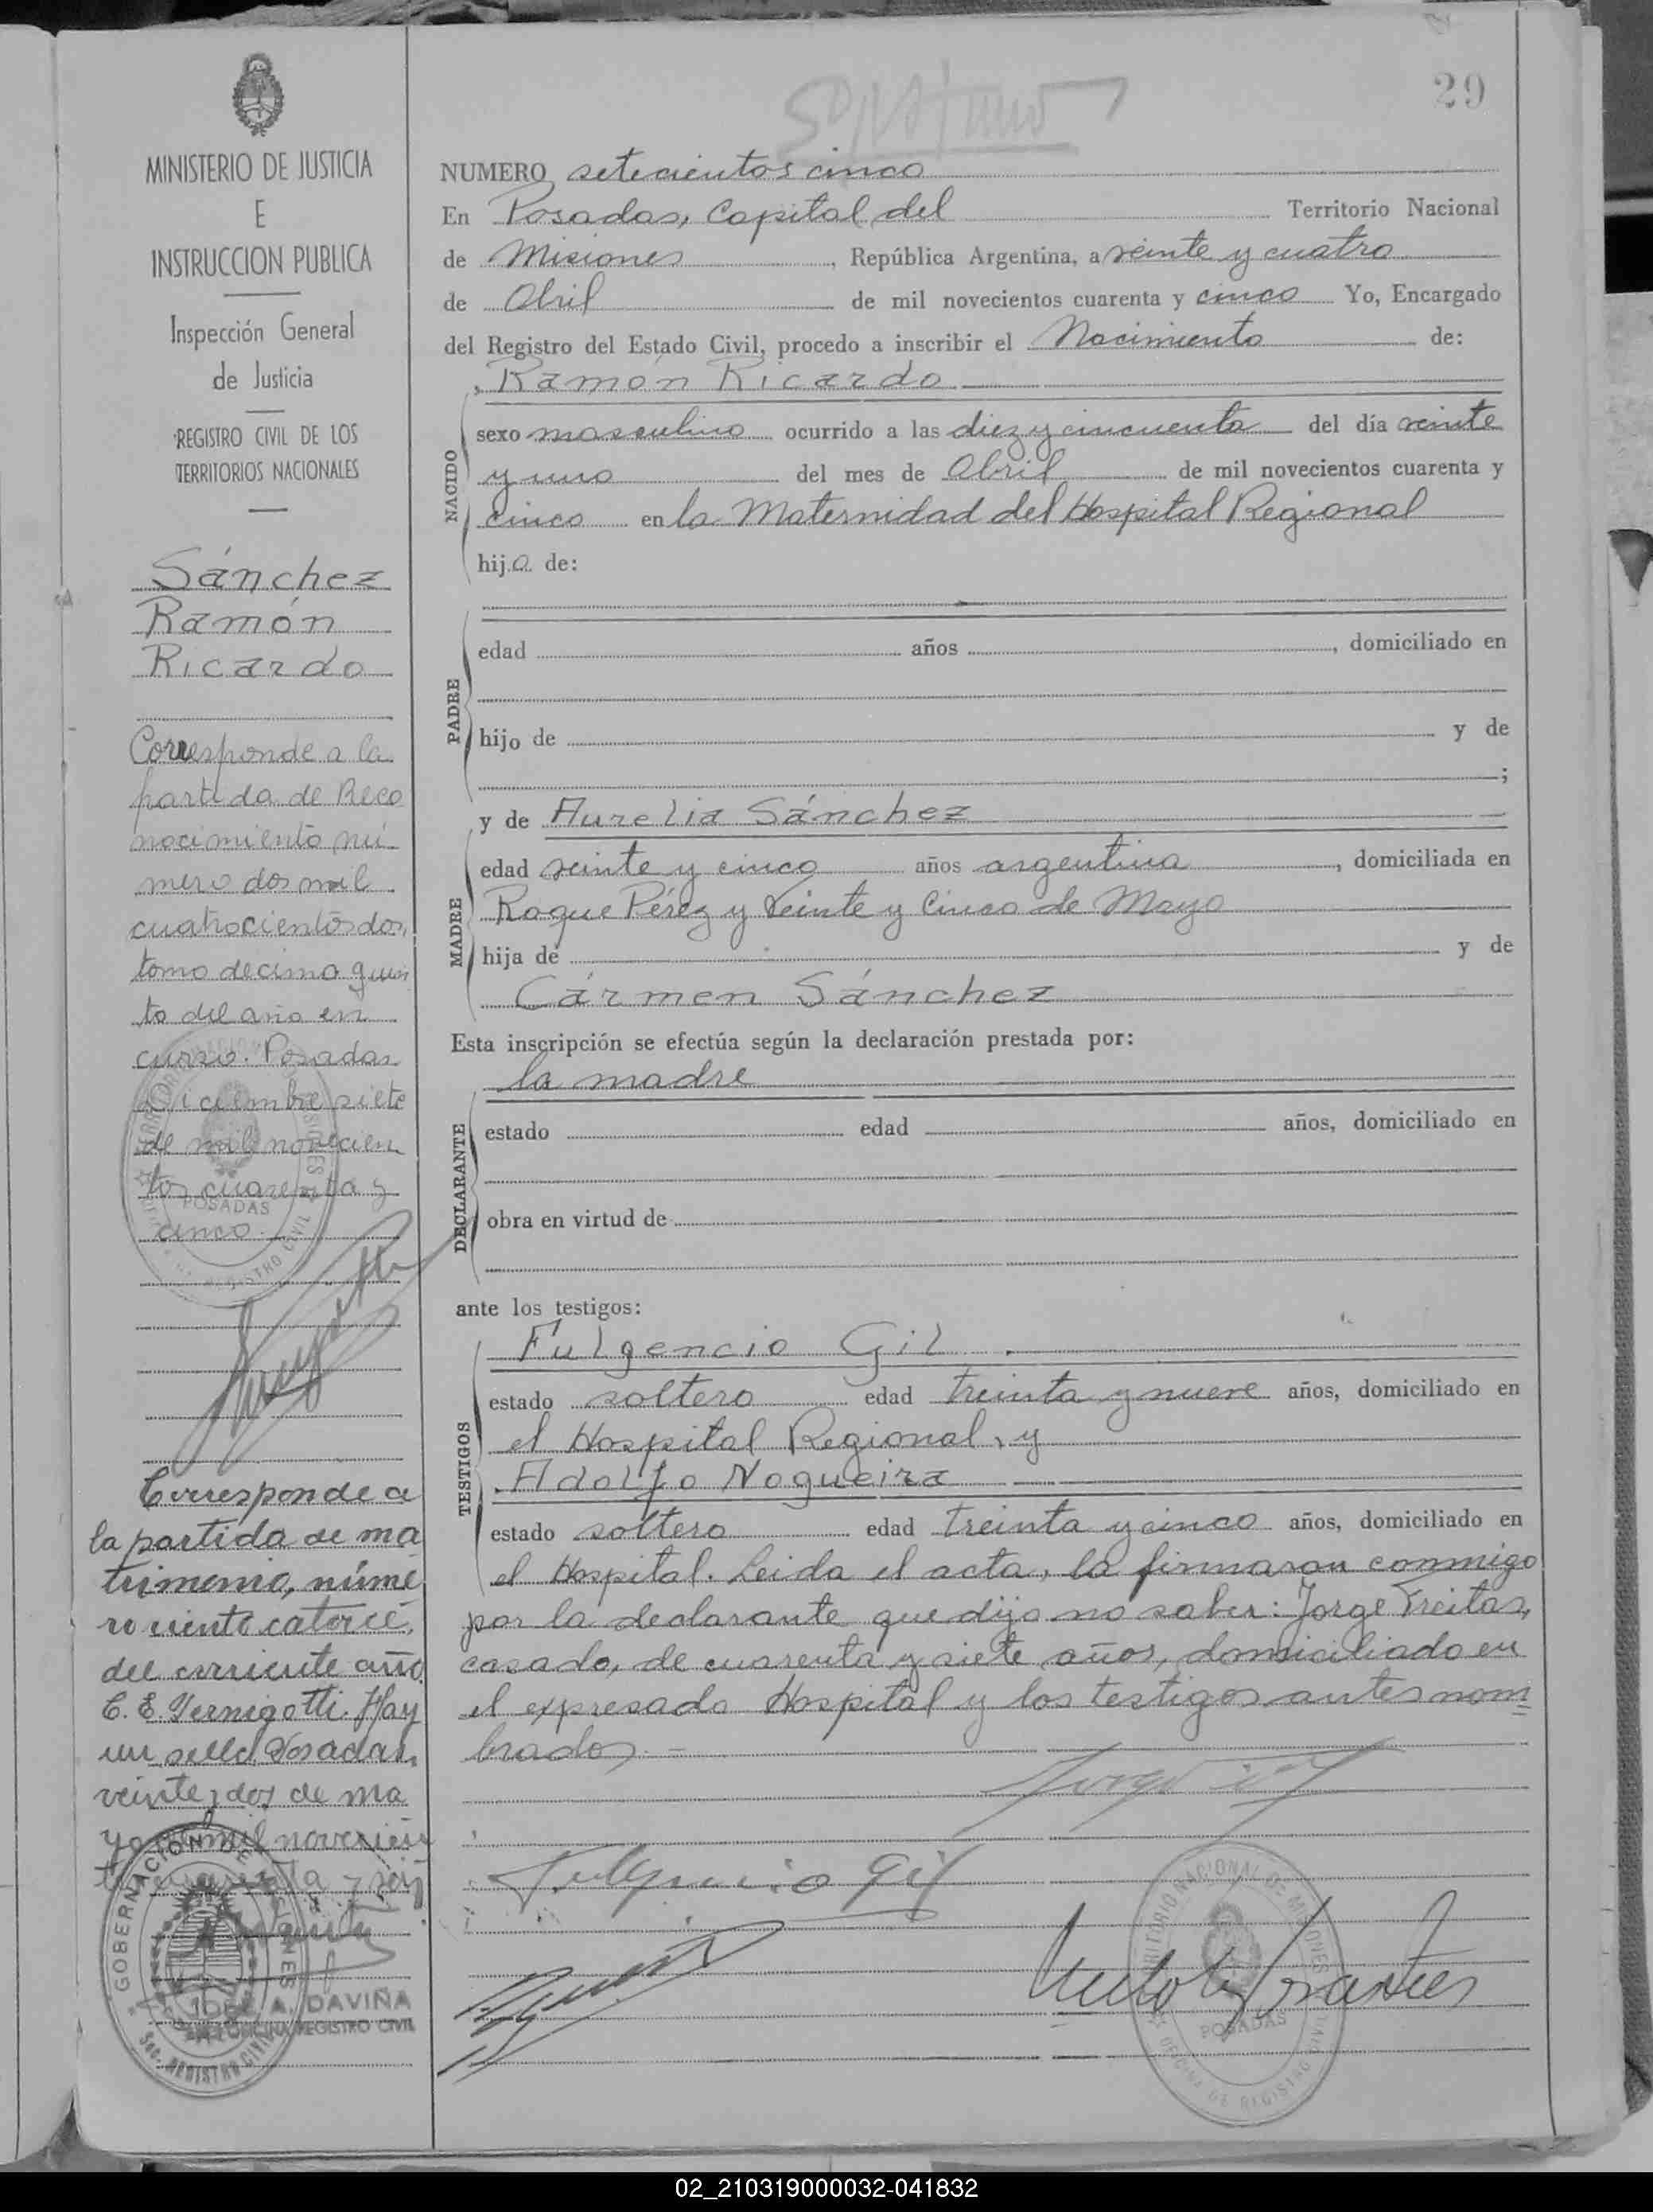 29
MINISTERIO DE JUSTICIA
E
INSTRUCCION PUBLICA
Inspección General
de Justicia
REGISTRO CIVIL DE LOS
TERRITORIOS NACIONALES
Sánchez
Ramón
Ricardo
Corresponde a la
partida de Reco
nocimiento nú-
mero dos mil
cuatrocientos dos,
tomo decimo quin
to del año en
curso. Posadas
Diciembre siete
de mil novecien
tos cuarenta y
cinco.
Corresponde a
la partida de ma
trimonio, núme
ro ciento catorce,
del corriente año.
C. E. Vernigotti. Hay
un sello. Posadas,
veinte y dos de ma
yo de mil novecien
tos cuarenta y seis
GOBERNACION DE MISIONES
Sec. REGISTRO CIVIL
JOSE A. DAVIÑA
OFICINA REGISTRO CIVIL
NUMERO setecientos cinco
En Posadas, Capital del Territorio Nacional
de Misiones, República Argentina, a veinte y cuatro
de Abril de mil novecientos cuarenta y cinco Yo, Encargado
del Registro del Estado Civil, procedo a inscribir el Nacimiento de:
Ramón Ricardo
NACIDO
sexo masculino ocurrido a las diez y cincuenta del día veinte
y uno del mes de Abril de mil novecientos cuarenta y
cinco en la Maternidad del Hospital Regional
hijo de:
PADRE
edad años, domiciliado en
hijo de y de
;
y de Aurelia Sánchez
MADRE
edad veinte y cinco años argentina, domiciliada en
Roque Pérez y Veinte y Cinco de Mayo
hija de y de
Cármen Sánchez
Esta inscripción se efectúa según la declaración prestada por:
la madre
DECLARANTE
estado edad años, domiciliado en
obra en virtud de
ante los testigos:
Fulgencio Gil
TESTIGOS
estado soltero edad treinta y nueve años, domiciliado en
el Hospital Regional, y
Adolfo Nogueira
estado soltero edad treinta y cinco años, domiciliado en
el Hospital. Leida el acta, la firmaron conmigo
por la declarante que dijo no saber: Jorge Freitas,
casado, de cuarenta y siete años, domiciliado en
el expresado Hospital y los testigos antes nom
brados.-
Fulgencio Gil
TERRITORIO NACIONAL DE MISIONES
POSADAS
OFICINA DE REGISTRO CIVIL
02_210319000032-041832